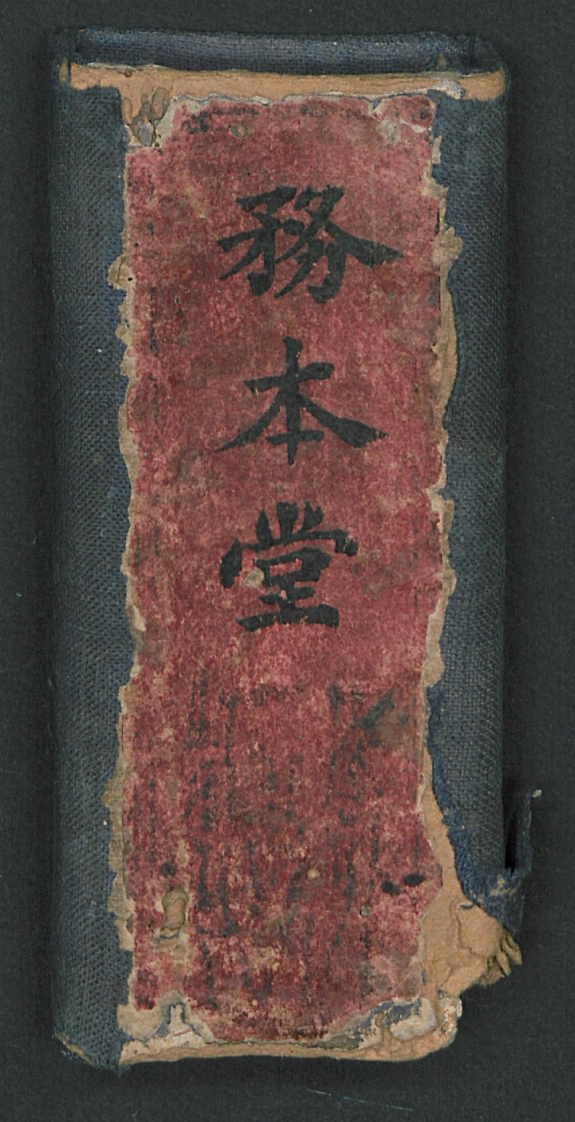 務本堂